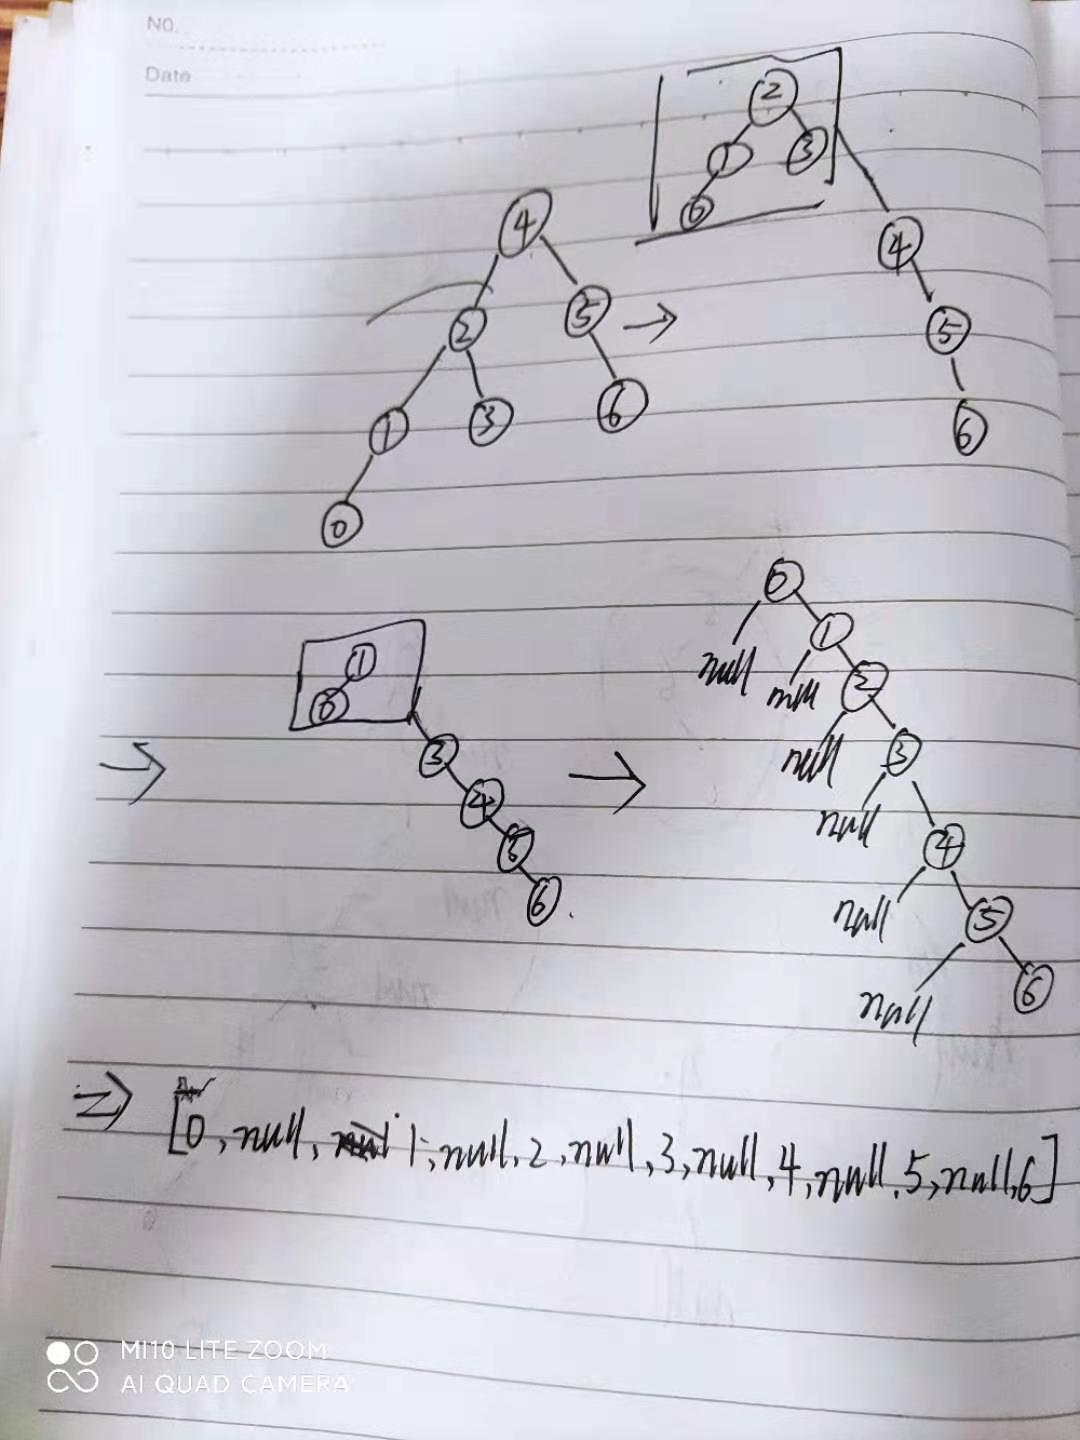 NO.
Date
2
1 3
0
4
4
2 5
5
1 3 6
6
0
0
null 1
null 2
1
0
null 3
3
null 4
4
null 5
5
null 6
6
[0, null, 1, null, 2, null, 3, null, 4, null, 5, null, 6]
MI10 LITE ZOOM
AI QUAD CAMERA